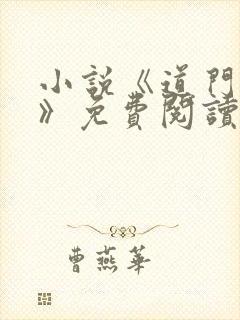 小説《道門
》免費閱讀
曹燕華